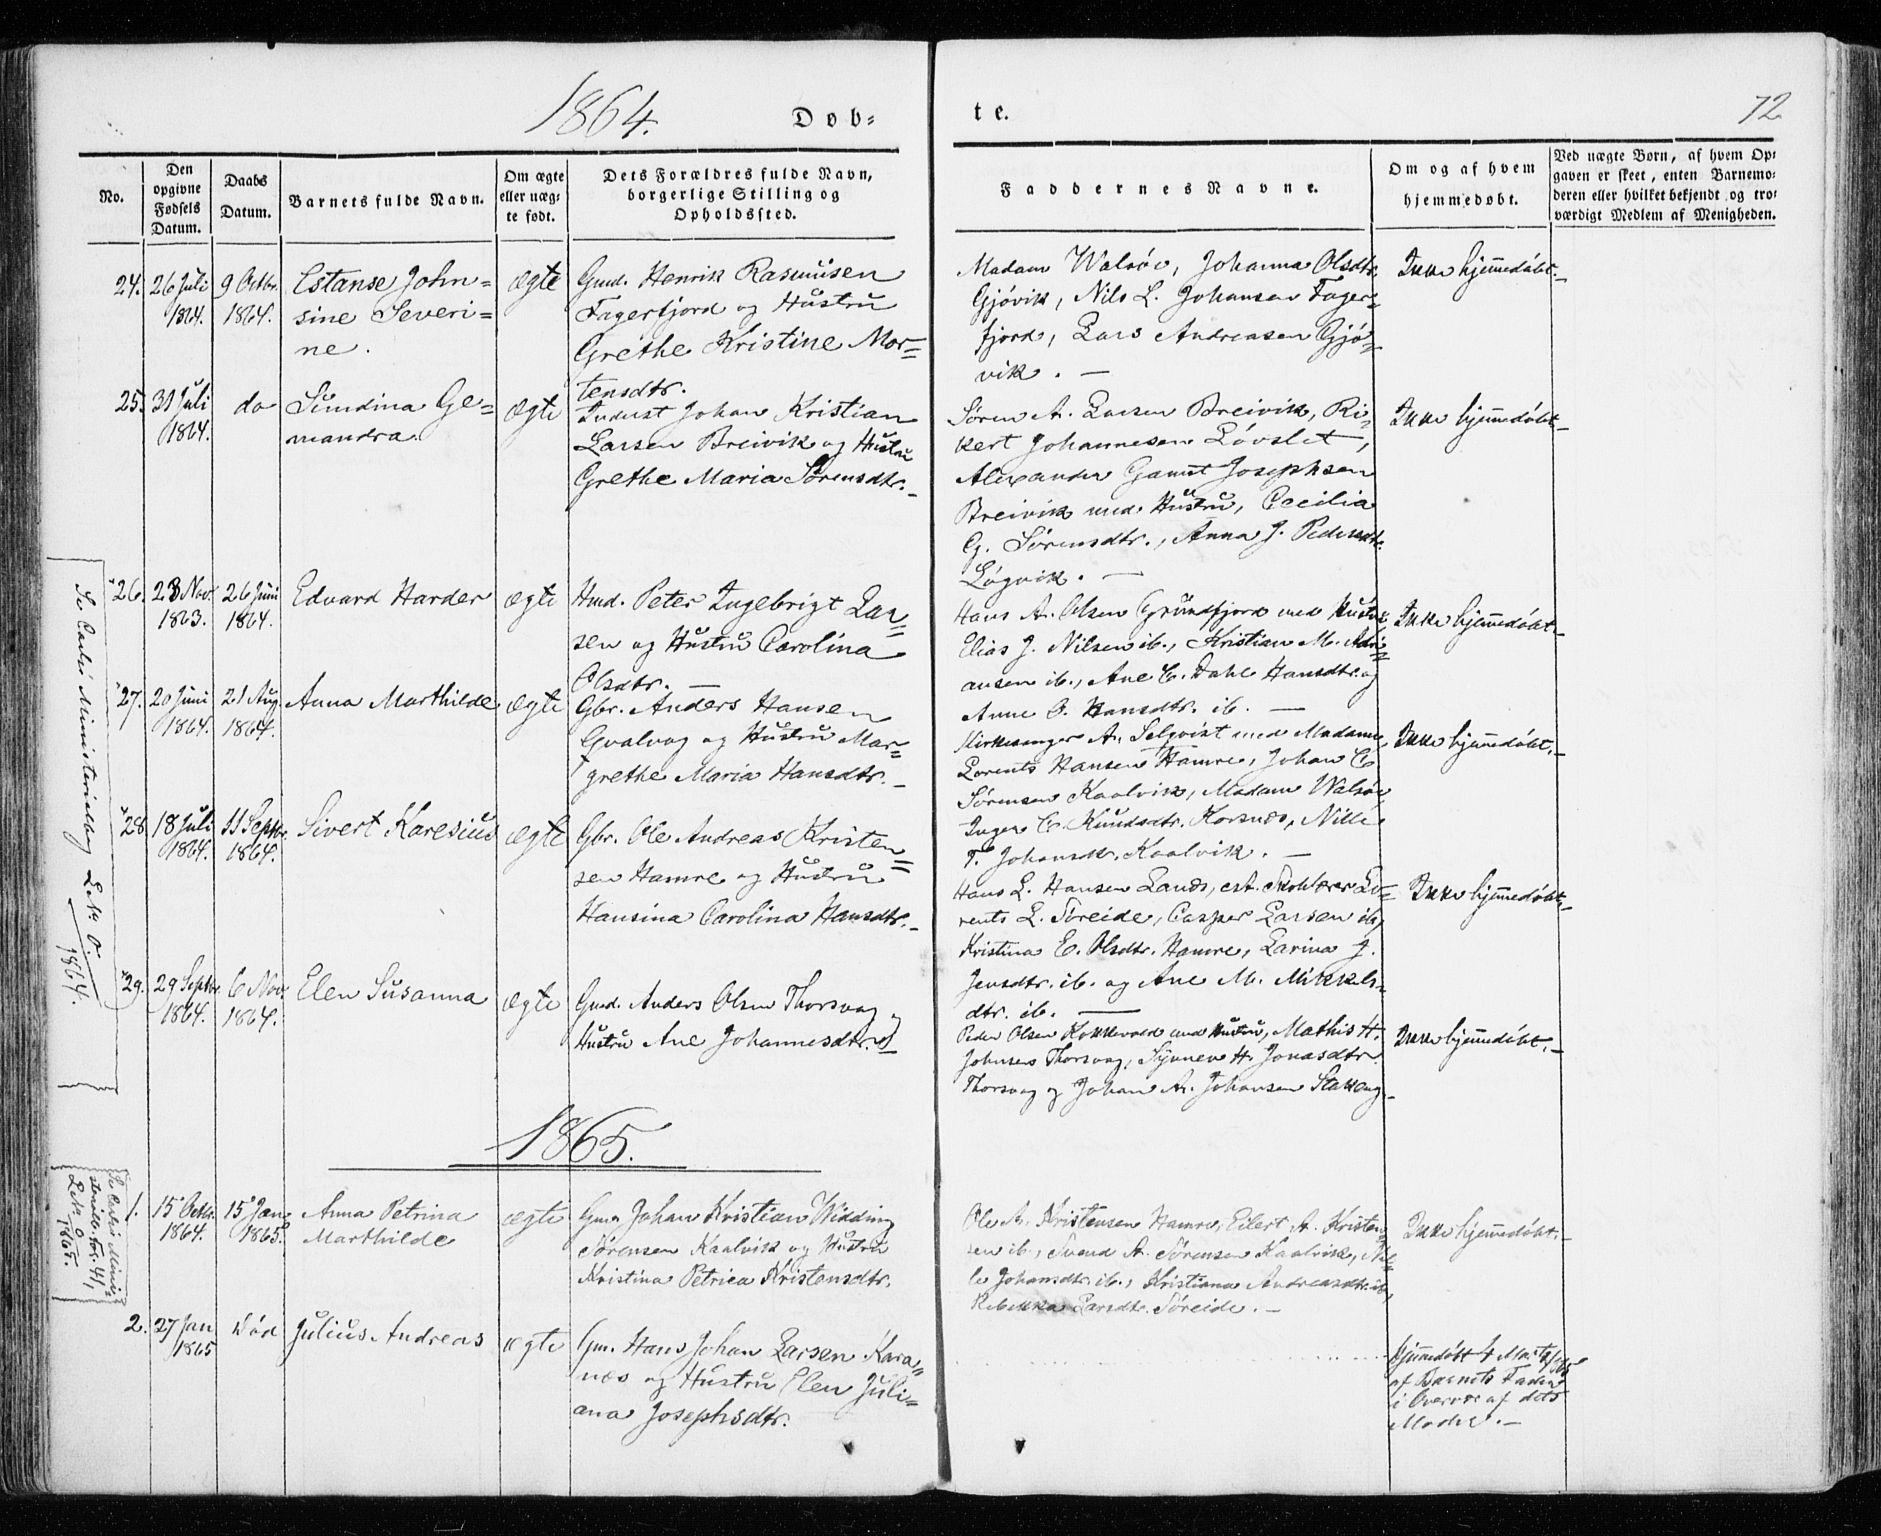 1864.
Døb-
te.
72
No.
Den opgivne Fødsels Datum.
Daabs Datum.
Barnets fulde Navn.
Om ægte eller uægte født.
Dets Forældres fulde Navn, borgerlige Stilling og Opholdssted.
Faddernes Navne.
Om og af hvem hjemmedøbt.
Ved uægte Børn, af hvem Op-
gaven er skeet, enten Barnemo-
deren eller hvilket bekjendt og tro-
værdigt Medlem af Menigheden.
24. 26 Juli 1864. 9 Octbr. 1864.
Estanse John=
sine Severi=
ne.
ægte
Gmd. Henrik Rasmusen
Fagerfjord og Hustru
Grethe Kristine Mor=
tensdtr.
Madam Walsøe, Johanna Olsdtr.
Gjøvik, Nils L. Johansen Fager=
fjord, Lars Andreasen Gjø=
vik. —
Ikke hjemmedøbt.—
25. 31 Juli 1864. do
Simdina Ge=
mandra.
ægte
Inderst Johan Kristian
Larsen Breivik og Hustru
Grethe Maria Sørensdtr.—
Søren A. Larsen Breivik, Ri=
kert Johannesen Løvslet,
Alexander Gamst Josephsen
Breivik med Hustru, Cecilia
G. Sørensdtr., Anna J. Pedersdtr.
Løgvik. —
Ikke hjemmedøbt—
26. 23 Nov. 1863. 26 Juni 1864.
Edvard Harder
ægte
Hmd. Peter Ingebrigt Lar=
sen og Hustru Carolina
Olsdtr. —
Hans A. Olsen Grundfjord med Hustru,
Elias J. Nilsen ib., Kristian M. Adri=
ansen ib., Ane C. Dahl Hansdtr. og
Anne O. Hansdtr. ib. —
Ikke hjemmedøbt.—
27. 20 Juni 1864. 21 Aug. 1864.
Anna Marthilde
ægte
Gbr. Anders Hansen
Gvalvog og Hustru Mar=
grethe Maria Hansdtr.—
Kirkesanger A. Selqvist med Madame,
Lorents Hansen Hamre, Johan C
Sørensen Kaalvik, Madam Walsøe,
Inger C. Knudsdtr. Korsnæs, Nille
T. Johansdtr. Kaalvik. —
Ikke hjemmedøbt.—
28. 18 Juli 1864. 11 Septbr. 1864.
Sivert Karesius
ægte
Gbr. Ole Andreas Kristen=
sen Hamre og Hustru
Hansina Carolina Hansdtr.—
Hans L. Hansen Lanæs, est. Skolelærer Lo=
rents L. Søreide, Casper Larsen ib.,
Kristina E. Olsdtr. Hamre, Larina J.
Jensdtr. ib. og Ane M. Mikkels=
dtr. ib. —
Ikke hjemmedøbt.—
29. 29 Septbr. 1864. 6 Nov. 1864.
Elen Susanna
ægte
Gmd. Anders Olsen Thorsvag og
Hustru Ane Johannesdtr.—
Peder Olsen Kokkevold med Hustru, Mathis H.
Johnsen Thorsvag, Synnev H. Jonasdtr.
Thorsvag og Johan A. Johansen Stakeng.—
Ikke hjemmedøbt.—
Se Carlsø Ministerialbog Litr. O. 1864.
1865.
Se Carlsø Mini=
sterialb. Fol. 41,
Litr. O
1865.
1. 15 Octbr. 1864. 15 Jan. 1865.
Anna Petrina
Marthilde
ægte
Gmd Johan Kristian Widding
Sørensen Kaalvik og Hustru
Kristina Petrica Kristensdtr.
Ole A. Kristensen Hamre, Eilert A. Kristen=
sen ib., Svend A. Sørensen Kaalvik, Nil=
le Johansdtr. ib., Kristiana Andreasdtr. ib.,
Rebekka Larsdtr. Søreide. —
Ikke hjemmedøbt.—
2. 27 Jan 1865 Død
Julius Andreas
ægte
Gm. Hans Johan Larsen Kara=
næs og Hustru Elen Juli=
ana Josephsdtr.
Hjemmedøbt
af Barnets Fader
i Overvær af dets
Moder.—